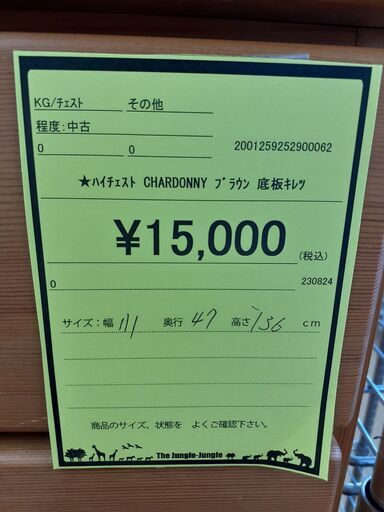 KG/ﾁｪｽﾄ その他
程度:中古
0 0 2001259252900062
★ﾊｲﾁｪｽﾄ CHARDONNY ﾌﾞﾗｳﾝ 底板ｷﾚﾂ
¥15,000 (税込)
0 230824
サイズ:幅 111 奥行 47 高さ 136 cm
商品のサイズ、状態を よくご確認下さい。
The Jungle-Jungle